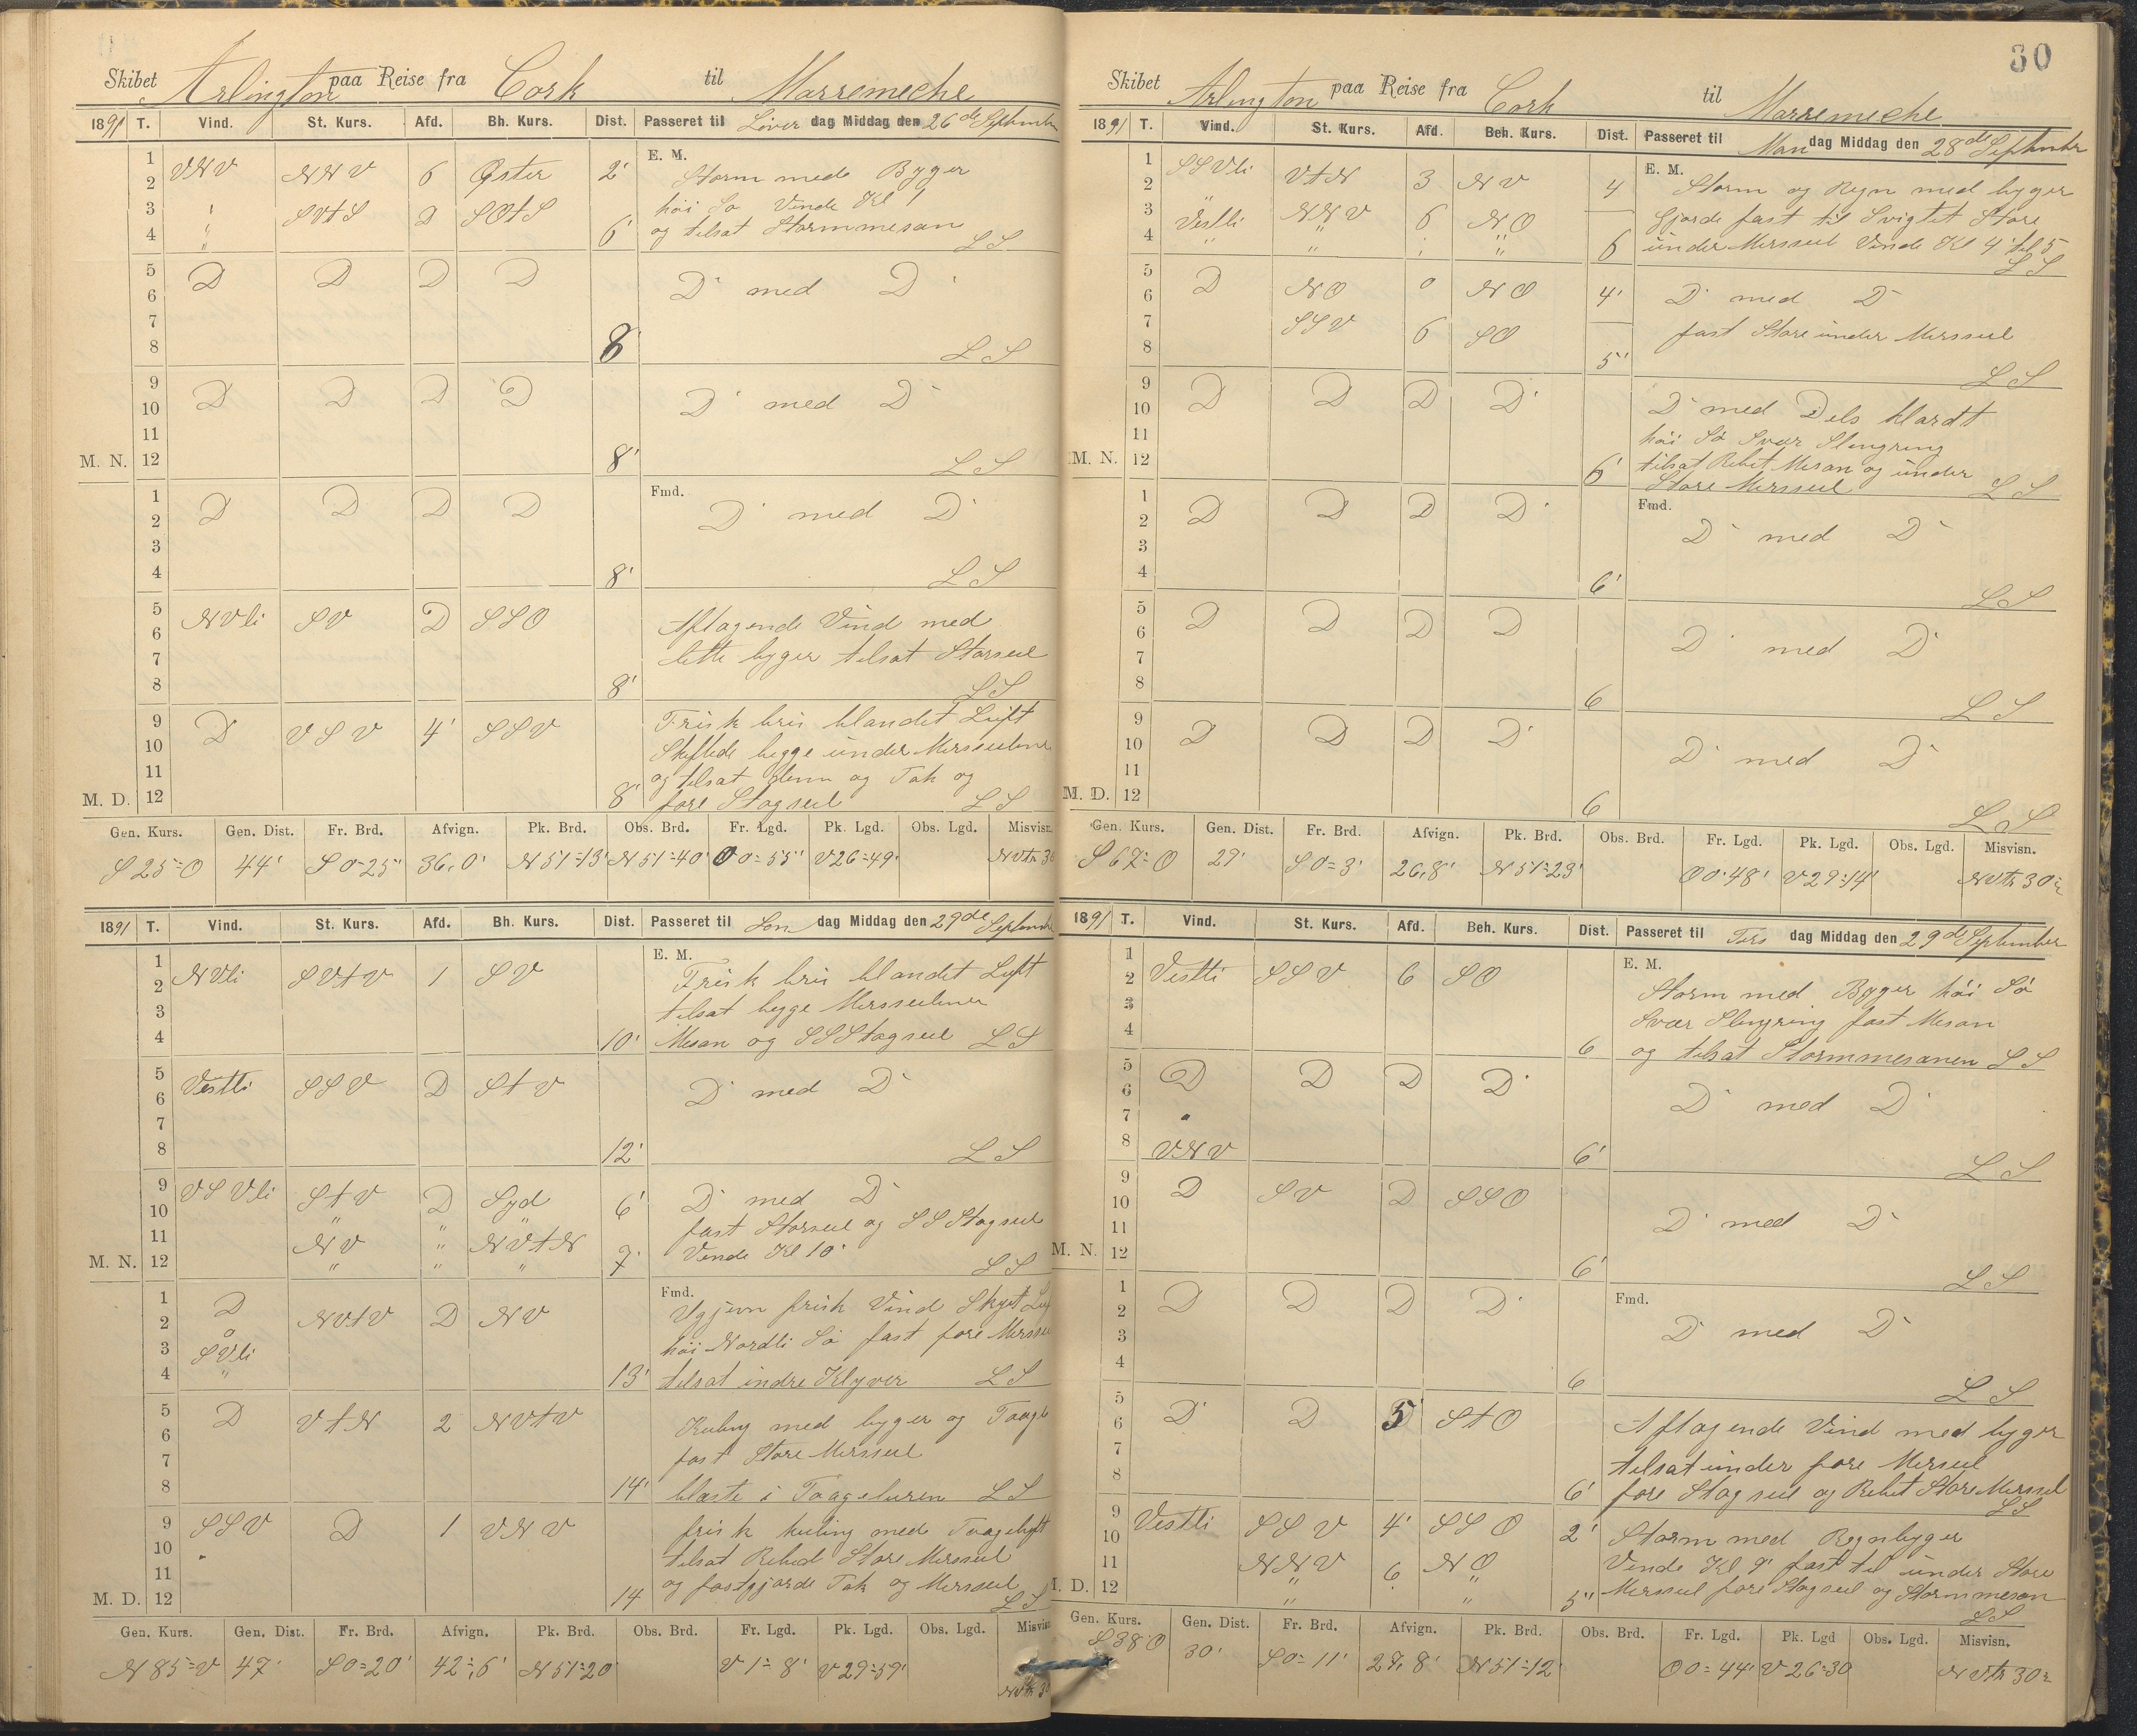 Skibet Arlington paa Reise fra Cork til Marremeche
1891 T. Vind. St. Kurs. Afd. Bh. Kurs. Dist. Passeret til Löver dag Middag den 26de September
E. M.
1
2 VNV NNV 6 Öster 2' Storm med Bygger
3 " SVtS D SOtS höi Sö Vende Kl 1
4 " 6' og tilsat Stormmesan LS
5 D D D D D med D
6
7
8 8' LS
9 D D D D D med D
10
11
M. N. 12 8' LS
Fmd.
1 D D D D D med D
2
3
4 8' LS
5 NVli SV D SSO Aftagende Vind med
6
7 lette byger tilsat Storseil
8 8' LS
9 D VSV 4' SSV Frisk bris blandet Luft
10 Skiftede begge under Mersseilene
11 og tilsat denn og Tak og
M. D. 12 8' fore Stagseil LS
Gen. Kurs. Gen. Dist. Fr. Brd. Afvign. Pk. Brd. Obs. Brd. Fr. Lgd. Pk. Lgd. Obs. Lgd. Misvisn.
S25=O 44' S0=25" 36,0' N51=13' N51=40' O0=55" V26=49' NVtr 30
1891 T. Vind. St. Kurs. Afd. Bh. Kurs. Dist. Passeret til Sön dag Middag den 27de September
E. M.
1
2 NVli SVtV 1 SV Frisk bris blandet Luft
3 tilsat begge Mersseilene
4 10' Mesan og SSStagseil LS
5 Vestli SSV D StV D med D
6
7
8 12' LS
9 VSVli StV D Syd 6' D med D
10 " " fast Storseil og SSStagseil
11 NV " NVtN Vende Kl 10'
M. N. 12 " " " 7' LS
Fmd.
1 D NVtV D NV Ugjevn frisk Vind Skyet
2 höi Nordli Sö fast fore
3 SVli
4 " 13' tilsat indre Klyver LS
5 D VtN 2 NVtV Kuling med byger og
6
7 fast Store Mersseil
8 14' blæste i Taageluren LS
9 SSV D 1 VNV frisk kuling med Taageluft
10 tilsat Rebed Store Mersseil
11 og fastgjorde Tak og Mersseil
M. D. 12 14 LS
Gen. Kurs. Gen. Dist. Fr. Brd. Afvign. Pk. Brd. Obs. Brd. Fr. Lgd. Pk. Lgd. Obs. Lgd. Misvisn
N85=V 47' S0=20' 42,6' N51=20' V1=8' V29=59' NVtr 30
30
Skibet Arlington paa Reise fra Cork til Marremeche
1891 T. Vind. St. Kurs. Afd. Beh. Kurs. Dist. Passeret til Man dag Middag den 28de September
E. M.
1 SSVli VtN 3 NV 4 Storm og Regn med byger
2 " Gjorde fast til Svigtet Store
3 Vestli NNV 6 NO
4 " " " " 6 under Mersseil Vende Kl 4 til 5 LS
5 D NO 0 NO 4' D med D
6
7 SSV 6 SO fast Store under Mersseil
8 5' LS
9 D D D D D med Dels klardt
10 höi Sö Svær Slingring
11 tilsat Rebet Mesan og under
M. N. 12 6' Store Mersseil LS
Fmd.
1 D D D D D med D
2
3
4 6' LS
5 D D D D D med D
6
7
8 6 LS
9 D D D D D med D
10
11
M. D. 12 6 LS
Gen. Kurs. Gen. Dist. Fr. Brd. Afvign. Pk. Brd. Obs. Brd. Fr. Lgd. Pk. Lgd. Obs. Lgd. Misvisn.
S67=O 29' S0=3' 26,8' N51=23' O0'48' V29=14' NVtr 30
1891 T. Vind. St. Kurs. Afd. Beh. Kurs. Dist. Passeret til Tirs dag Middag den 29de September
E. M.
1
2 Vestli SSV 6 SO Storm med Bygger höi Sö
3 Svær Slingring fast Mesan
4 6 og tilsat Stormmesanen LS
5 D D D D D med D
6
7 "
8 VNV 6' LS
9 D SV D SSO D med D
10
11
M. N. 12 6' LS
Fmd.
1 D D D D D med D
2
3
4 6 LS
5 D D 5 StO Aftagende Vind med byger
6
7 tilsat under fore Merseil
8 6' fore Stagseil og Rebet Store Mersseil LS
9 Vestli SSV 4' SSO 2' Storm med Regnbyger
10 Vende Kl 9' fast til under Store
11 NNV 6 NO Merseil fore Stagseil og Stormmesan
M. D. 12 " " 5" LS
Gen. Kurs. Gen. Dist. Fr. Brd. Afvign. Pk. Brd. Obs. Brd. Fr. Lgd. Pk. Lgd Obs. Lgd. Misvisn.
S38'O 30' S0=11' 27,8' N51=12' O0=44' V26=30 NVtr 30